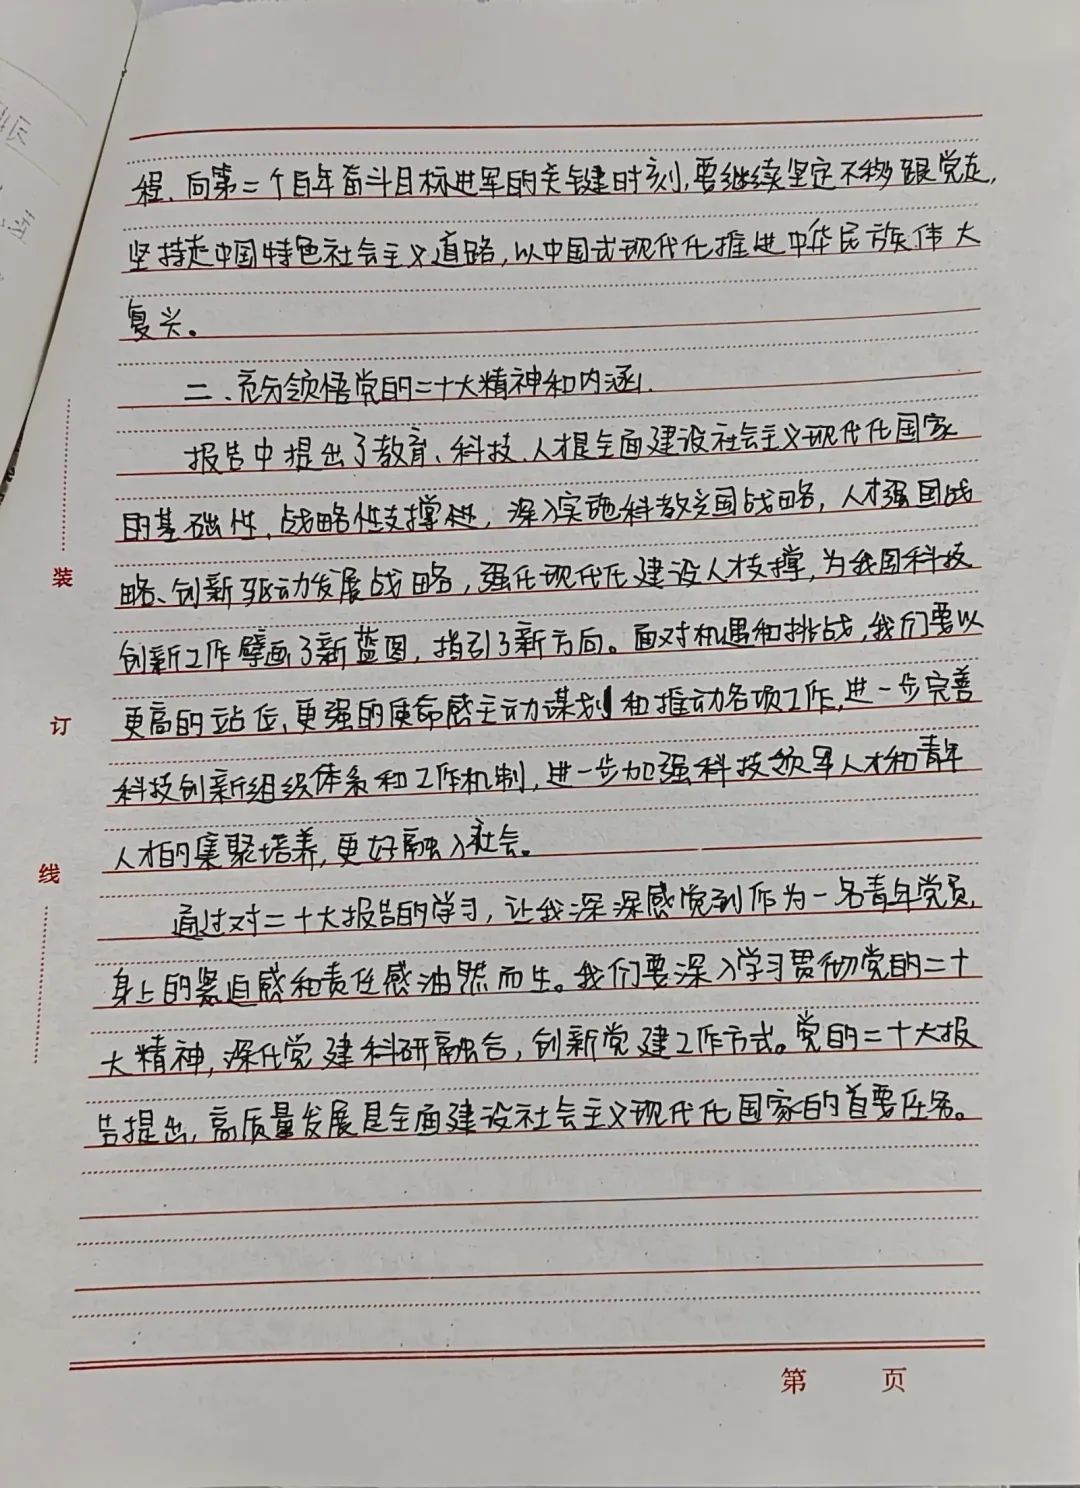 程、向第二个百年奋斗目标进军的关键时刻,要继续坚定不移跟党走,
坚持走中国特色社会主义道路,以中国式现代化推进中华民族伟大
复兴。
二、充分领悟党的二十大精神和内涵.
报告中提出了教育、科技、人才是全面建设社会主义现代化国家
的基础性、战略性支撑,深入实施科教兴国战略,人才强国战
略、创新驱动发展战略,强化现代化建设人才支撑,为我国科技
创新工作擘画了新蓝图,指引了新方向。面对机遇和挑战,我们要以
更高的站位、更强的使命感主动谋划和推动各项工作,进一步完善
科技创新组织体系和工作机制,进一步加强科技领军人才和青年
人才的集聚培养,更好融入社会。
通过对二十大报告的学习,让我深深感觉到作为一名青年党员,
身上的紧迫感和责任感油然而生。我们要深入学习贯彻党的二十
大精神,深化党建科研融合,创新党建工作方式。党的二十大报
告提出,高质量发展是全面建设社会主义现代化国家的首要任务。
装
订
线
第 页